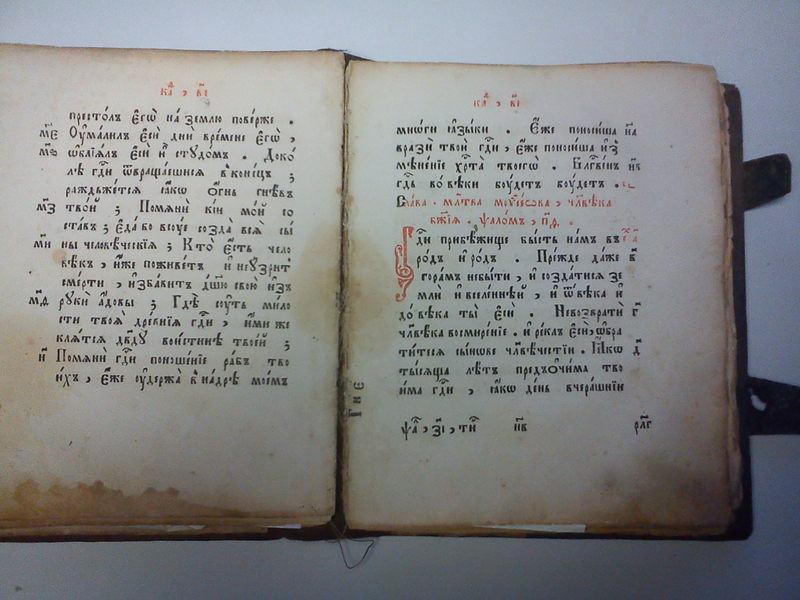 ка҃ , в҃і
престо́лъ є҆гѡ̀ на́ землю пове́рже .
м҃є Оу҆ма́лилъ є҆сѝ дни́й вре́мене є҆гѡ̀ ,
ѡ҆блїѧ́лъ є҆сѝ и҆̀ стꙋдо́мъ . Доко́
м҃ѕ лѣ гд҇и ѿвраща́ешисѧ в конє́цъ ;
раждьже́тсѧ ꙗ҆́кѡ ѻ҆́гнь гнѣ́въ
м҃з тво́й ; Помѧнѝ кі́й мо́й со
ста́въ ; є҆да́ во всꙋе созда̀ всѧ̀ сы́
м҃и ны человѣ́ческїѧ ; Кто̀ є҆́сть чело
вѣ́къ , и҆́же поживе́тъ и҆ не ᲂу҆́зритъ
сме́рти , и҆зба́витъ дш҃ꙋ свою̀ и҆зъ
м҃ѳ рꙋкѝ а҆́довы ; Гдѣ̀ сꙋ́ть ми́ло
сти твоѧ̀ дре́внїѧ гд҇и , и҆́ми же
клѧ́тсѧ дв҃дꙋ во и́стинѣ твое́й ;
н҃ Помѧнѝ гд҇и поноше́нїе ра́бъ тво
и́хъ , є҆́же ᲂу҆держа̀ в на́дрѣ мое́мъ
ка҃ , в҃і
мно́ги ꙗ҆зы́ки . Є҆́же поноси́ша н҃а
вразѝ твоѝ гд҇и , є҆́же поноси́ша и҆з̾
мѣне́нїю хрⷭ҇та̀ твоегѡ̀ . Бл҃гве́нъ н҃в
гд҇ь во́ вѣки бꙋ́детъ бꙋ́детъ .
Сла́ва . мл҃тва моѷсе́ова , чл҃вѣ́ка
бж҃їѧ . ѱало́мъ , п҃ѳ .
Гд҇и прибѣ́жище бы́сть на́мъ въ
ро́дъ и҆ ро́дъ . Пре́жде да́же в҃
гора́мъ не бы́ти , и҆ созда́тисѧ зе
млѝ и҆ вселе́ннѣй , и҆ ѿ вѣ́ка и҆
до́ вѣка ты̀ є҆сѝ . Не возвратѝ г҃
чл҃вѣ́ка во смире́нїе . и҆ ре́къ є҆сѝ , ѡ҆бра
ти́тесѧ сы́нове чл҃вѣ́честїи . Ꙗ҆́кѡ д҃
ты́сѧща лѣ́тъ пред̾ ѻ҆чи́ма тво
и́ма гд҇и , ꙗ҆́кѡ де́нь вчера́шнїи
н҃в